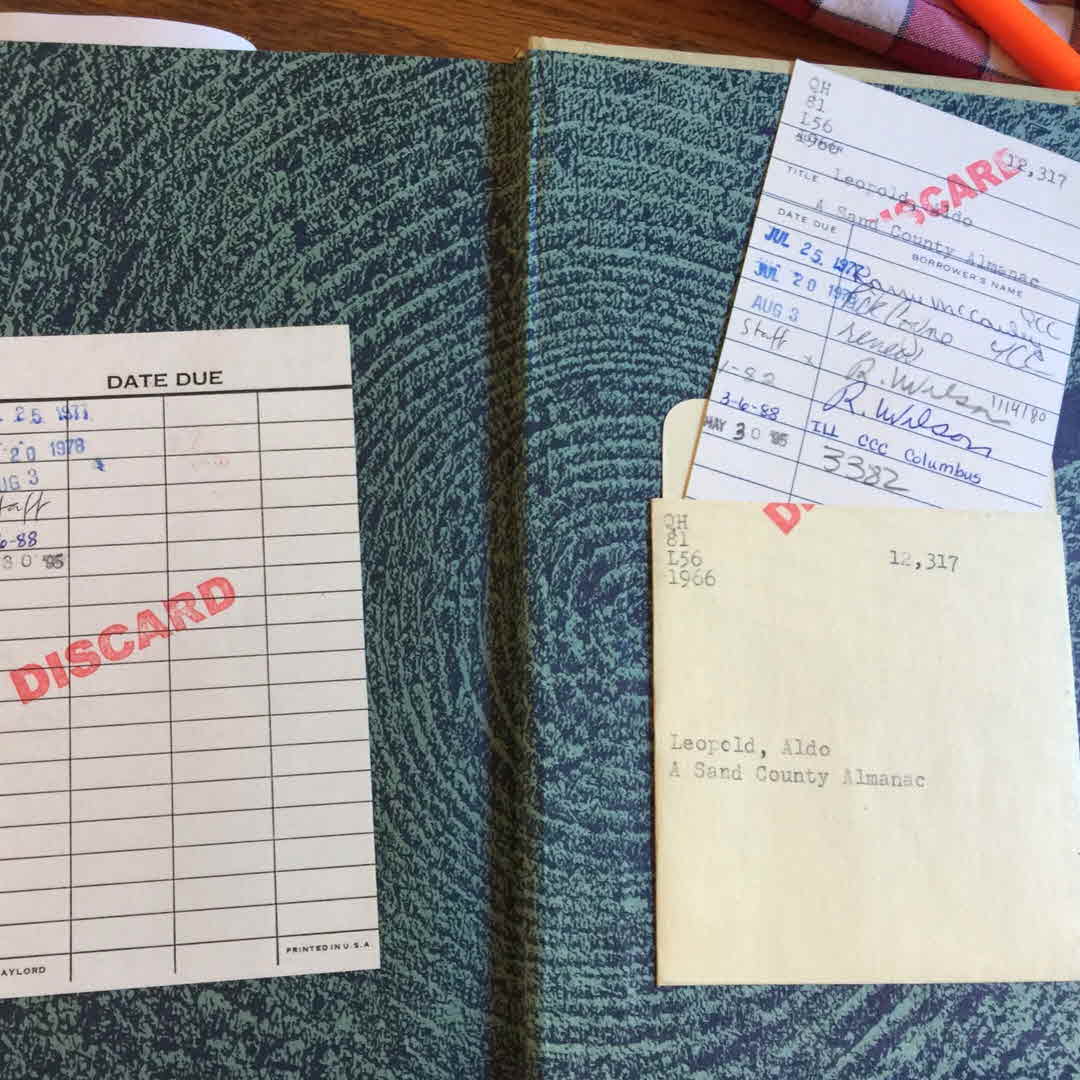 DATE DUE
25 1977
20 1978
UG 3
taff
6-88
30 '95
DISCARD
PRINTED IN U.S.A.
AYLORD
QH
81
L56
1966
12,317
DISCARD
TITLE Leopold, Aldo
A Sand County Almanac
DATE DUE BORROWER'S NAME
JUL 25
JUL 20
AUG 3 renewal
Staff R. Wilson 1/14/80
1-82 R. Wilson
3-6-88 ILL CCC Columbus
MAY 30 '95 3382
QH
81
L56
1966
12,317
Leopold, Aldo
A Sand County Almanac